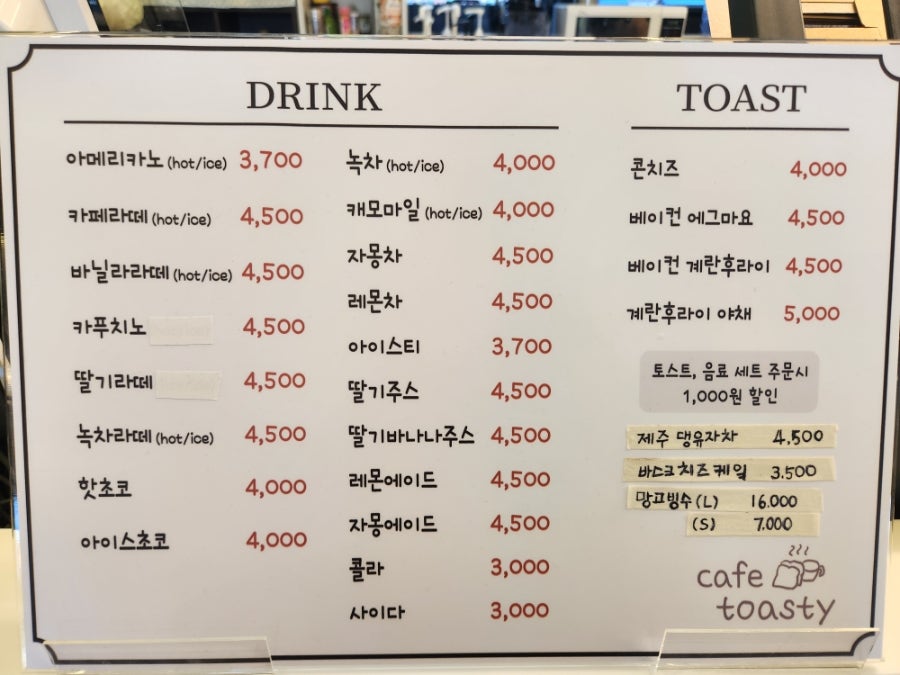 DRINK
아메리카노 (hot/ice) 3,700
카페라떼 (hot/ice) 4,500
바닐라라떼 (hot/ice) 4,500
카푸치노 4,500
딸기라떼 4,500
녹차라떼 (hot/ice) 4,500
핫초코 4,000
아이스초코 4,000
녹차 (hot/ice) 4,000
캐모마일 (hot/ice) 4,000
자몽차 4,500
레몬차 4,500
아이스티 3,700
딸기주스 4,500
딸기바나나주스 4,500
레몬에이드 4,500
자몽에이드 4,500
콜라 3,000
사이다 3,000
TOAST
콘치즈 4,000
베이컨 에그마요 4,500
베이컨 계란후라이 4,500
계란후라이 야채 5,000
토스트, 음료 세트 주문시
1,000원 할인
제주 댕유자차 4.500
바스크치즈케잌 3.500
망고빙수 (L) 16.000
(S) 7.000
cafe
toasty